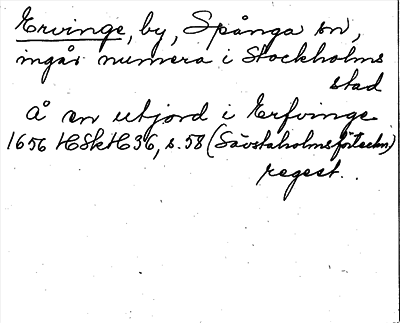 Ervinge, by, Spånga sn,
ingår numera i Stockholms
stad
Å en utjord i Erfvinge
1656 HSkH 36, s. 58 (Sävstaholmsförteckn)
regest.